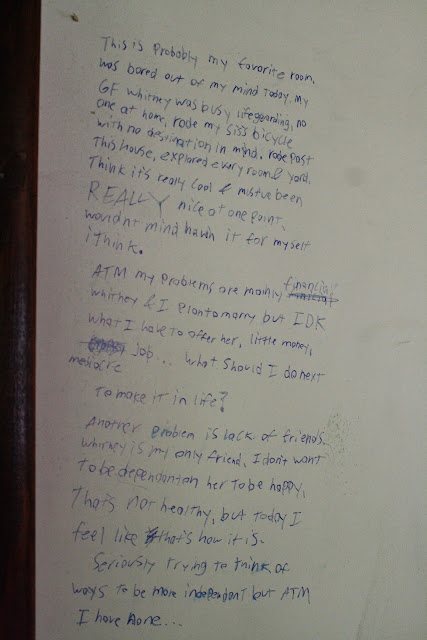 This is Probably my favorite room.
was bored out of my mind today, my
GF Whitney was busy lifeguarding, no
one at home, rode my sis's bicycle
with no destination in mind. rode past
This house, explored every room & yard.
Think it's really cool & mustve been
REALLY nice at one point,
wouldnt mind havin it for my self
i think.
ATM my problems are mainly financial
whitney & I plan to marry but IDK
what I have to offer her, little money,
mediocre job... what should I do next
To make it in life?
Another problem is lack of friends.
whitney is my only friend, I don't want
to be dependant on her to be happy,
That's not healthy, but today I
feel like that's how it is.
Seriously trying to think of
ways to be more independant but ATM
I have none...